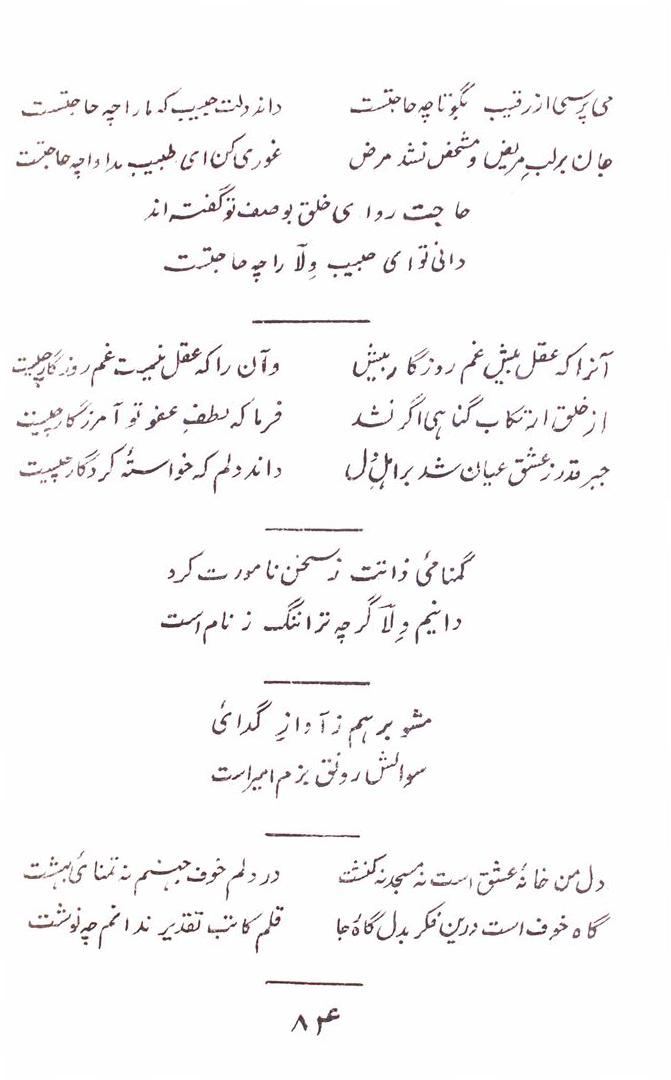 می پرسی از رقیب بگو تا چه حاجتست داند دلت حبیب که ما را چه حاجتست
جان بر لب مریض و مشخص نشد مرض غوری کن ای طبیب مداوا چه حاجتست
حاجت روا ی خلق بوصف تو گفته اند
دانی تو ا ی حبیب وِلّا را چه حاجتست
آنرا که عقل بیش غم روزگار بیش وآن را که عقل نیست غم روزگار چیست
از خلق ارتکاب گناهی اگر نشد فرما که لطفِ عفو تو آمرزگار چیست
جبر قدر ز عشق عیان شد بر اهلِ دل داند دلم که خواستهٔ کردگار چیست
گمنامیٔ ذاتت ز سخن نامورت کرد
دانیم وِلّا گرچه ترا ننگ ز نام است
مشو برهم ز آوازِ گدایٔ
سوالش رونق بزم امیر است
دل من خانهٔ عشق است نه مسجد نه کنشت در دلم خوف جهنم نه تمنایٔ بهشت
گاه خوف است درین فکر بدل گاهٔ جا قلم کاتب تقدیر ندانم چه نوشت
۸۴